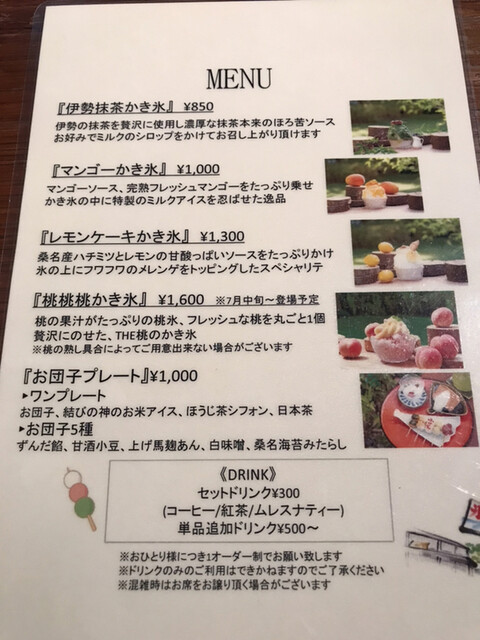 MENU
『伊勢抹茶かき氷』 ¥850
伊勢の抹茶を贅沢に使用し濃厚な抹茶本来のほろ苦ソース
お好みでミルクのシロップをかけてお召し上がり頂けます
『マンゴーかき氷』 ¥1,000
マンゴーソース、完熟フレッシュマンゴーをたっぷり乗せ
かき氷の中に特製のミルクアイスを忍ばせた逸品
『レモンケーキかき氷』 ¥1,300
桑名産ハチミツとレモンの甘酸っぱいソースをたっぷりかけ
氷の上にフワフワのメレンゲをトッピングしたスペシャリテ
『桃桃桃かき氷』 ¥1,600 ※7月中旬～登場予定
桃の果汁がたっぷりの桃氷、フレッシュな桃を丸ごと1個
贅沢にのせた、THE桃のかき氷
※桃の熟し具合によってご用意出来ない場合がございます
『お団子プレート』¥1,000
▸ワンプレート
お団子、結びの神のお米アイス、ほうじ茶シフォン、日本茶
▸お団子5種
ずんだ餡、甘酒小豆、上げ馬麹あん、白味噌、桑名海苔みたらし
《DRINK》
セットドリンク¥300
(コーヒー/紅茶/ムレスナティー)
単品追加ドリンク¥500～
※おひとり様につき1オーダー制でお願い致します
※ドリンクのみのご利用はできかねますのでご了承ください
※混雑時はお席をお譲り頂く場合がございます